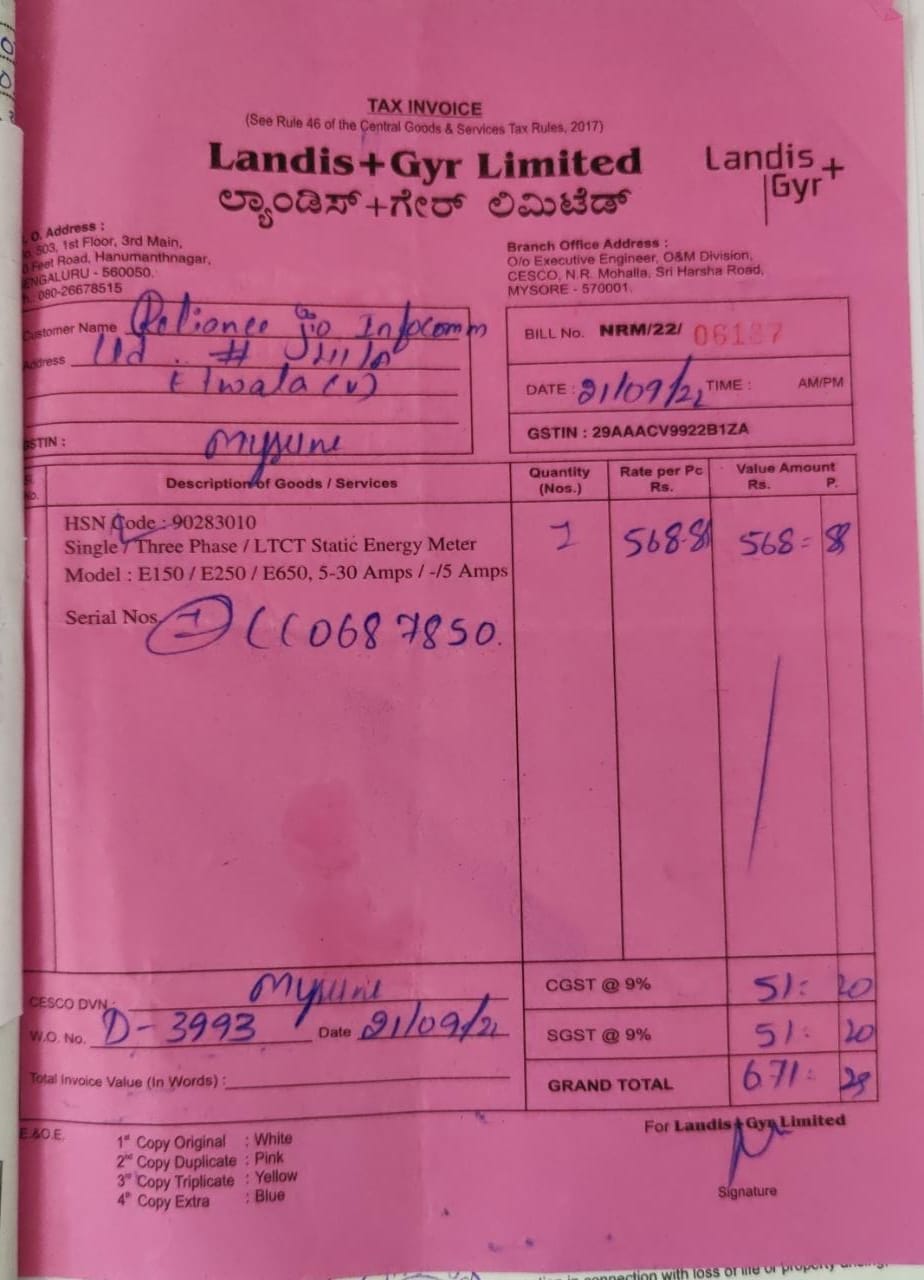 TAX INVOICE
(See Rule 46 of the Central Goods & Services Tax Rules, 2017)
Landis+Gyr Limited
ಲ್ಯಾಂಡಿಸ್+ಗೇರ್ ಲಿಮಿಟೆಡ್
Landis+
Gyr
O. Address :
503, 1st Floor, 3rd Main,
Feet Road, Hanumanthnagar,
ENGALURU - 560050.
080-26678515
Branch Office Address :
O/o Executive Engineer, O&M Division,
CESCO, N.R. Mohalla, Sri Harsha Road,
MYSORE - 570001.
Customer Name Reliance Jio Infocomm
Address Ltd . #
Elwala (v)
GSTIN : Mysure
BILL No. NRM/22/ 06187
DATE : 21/09/22 TIME : AM/PM
GSTIN : 29AAACV9922B1ZA
No.
Description of Goods / Services
Quantity (Nos.)
Rate per Pc Rs.
Value Amount Rs. P.
HSN Code : 90283010
Single / Three Phase / LTCT Static Energy Meter
Model : E150 / E250 / E650, 5-30 Amps / -/5 Amps
1 568.8 568 = 8
Serial Nos. 1 CC0687850.
CESCO DVN : Mysure
W.O. No. D-3993 Date 21/09/2
Total Invoice Value (In Words) :
CGST @ 9% 51 : 20
SGST @ 9% 51 : 20
GRAND TOTAL 671 : 28
E.&O.E.
1st Copy Original : White
2nd Copy Duplicate : Pink
3rd Copy Triplicate : Yellow
4th Copy Extra : Blue
For Landis+Gyr Limited
Signature
in connection with loss of life or property